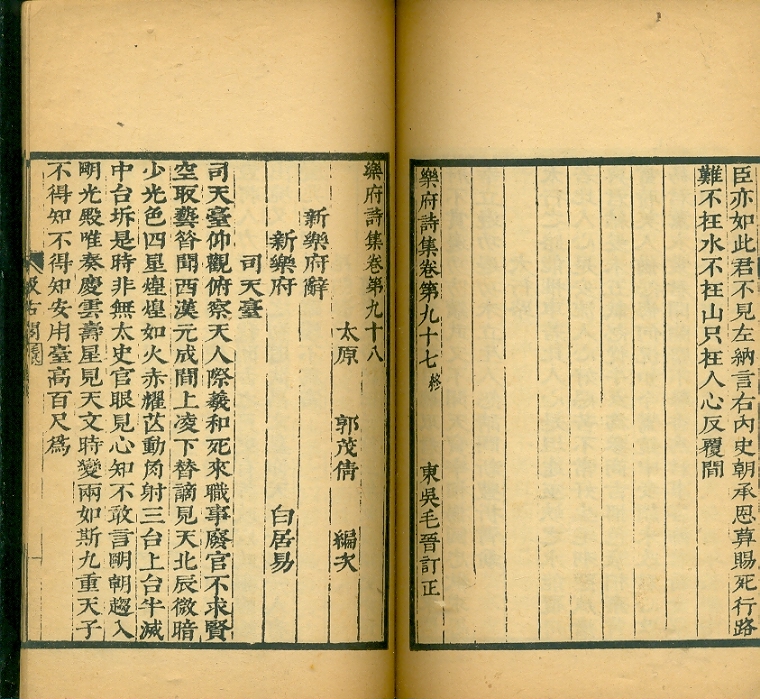 臣亦如此君不見左納言右內史朝承恩莫賜死行路
難不在水不在山只在人心反覆間
樂府詩集卷第九十七 終
東吳毛晉訂正
樂府詩集卷第九十八
太原 郭茂倩 編次
新樂府辭
新樂府 白居易
司天臺
司天臺仰觀俯察天人際羲和死來職事廢官不求賢
空取藝昝聞西漢元成間上凌下替謫見天北辰微暗
少光色四星煌煌如火赤耀芒動角射三台上台半滅
中台坼是時非無太史官眼見心知不敢言明朝趨入
明光殿唯奏慶雲壽星見天文時變兩如斯九重天子
不得知不得知安用臺高百尺爲
汲古閣